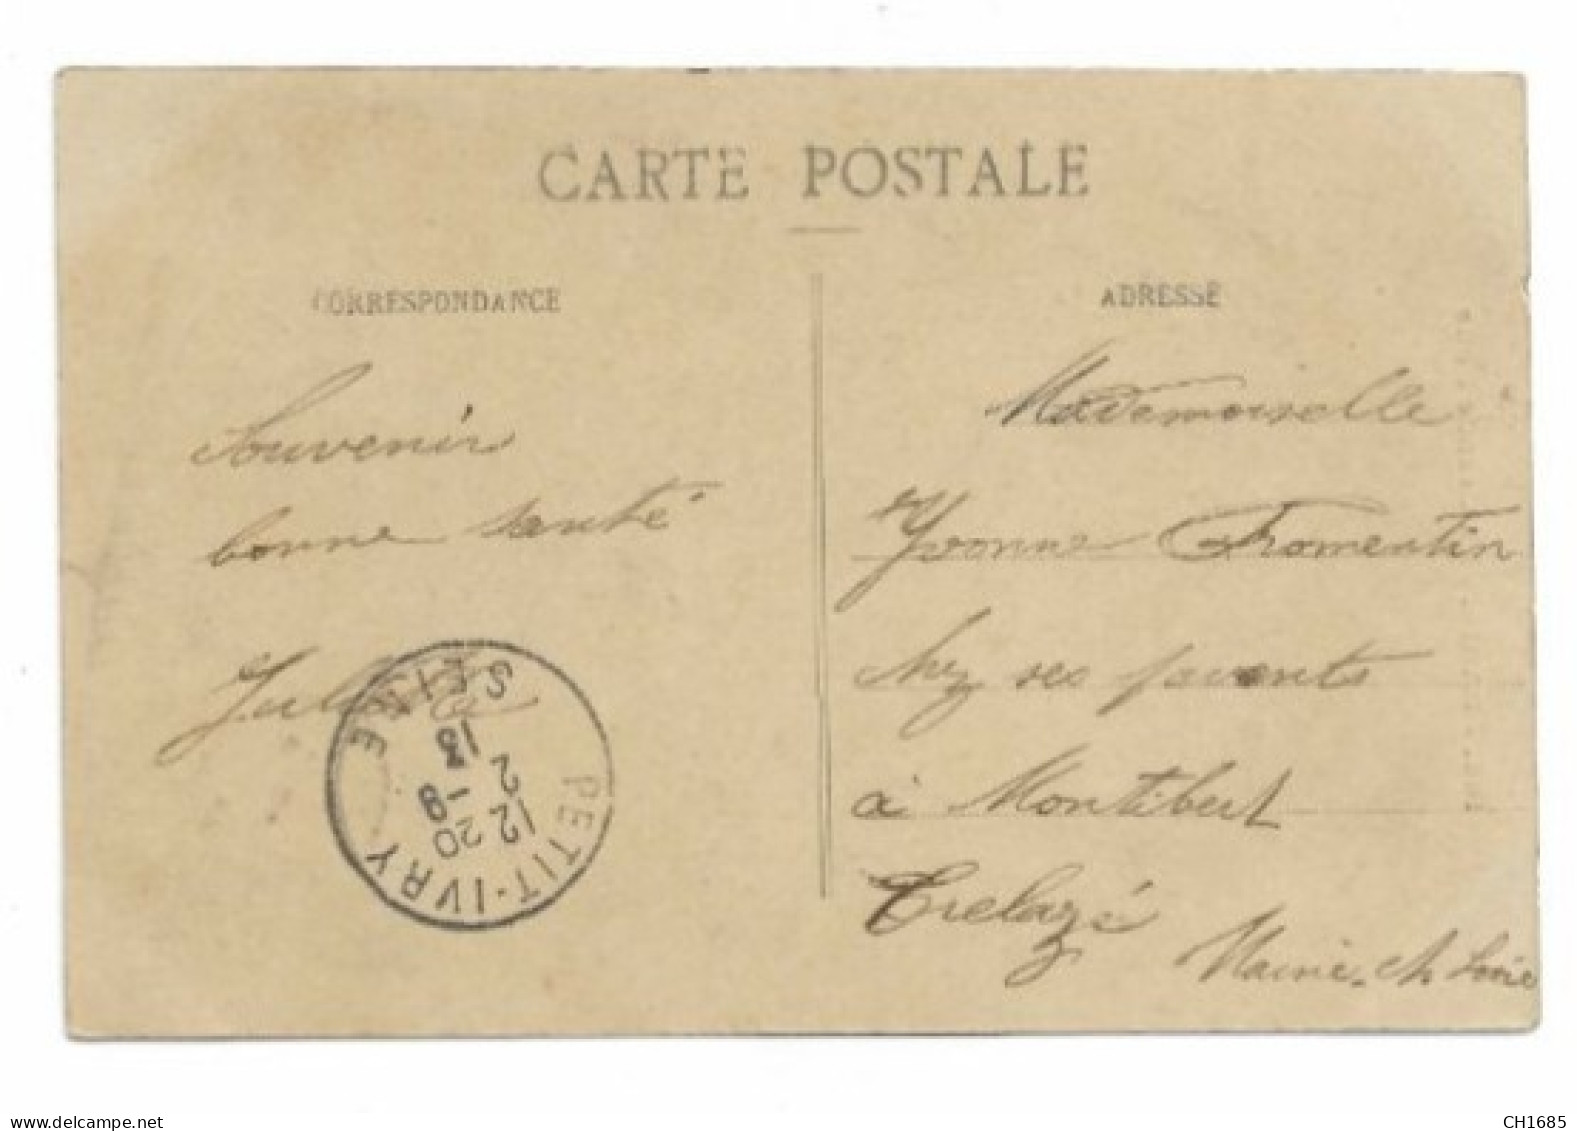 CARTE POSTALE
CORRESPONDANCE
ADRESSE
Souvenir
bonne santé
Mademoiselle
Yvonne Fromentin
chez ses parents
à Montibert
Trelazé
Maine-et-Loire
PETIT-IVRY
SEINE
12 20
2 -8
13
www.delcampe.net
CH1685